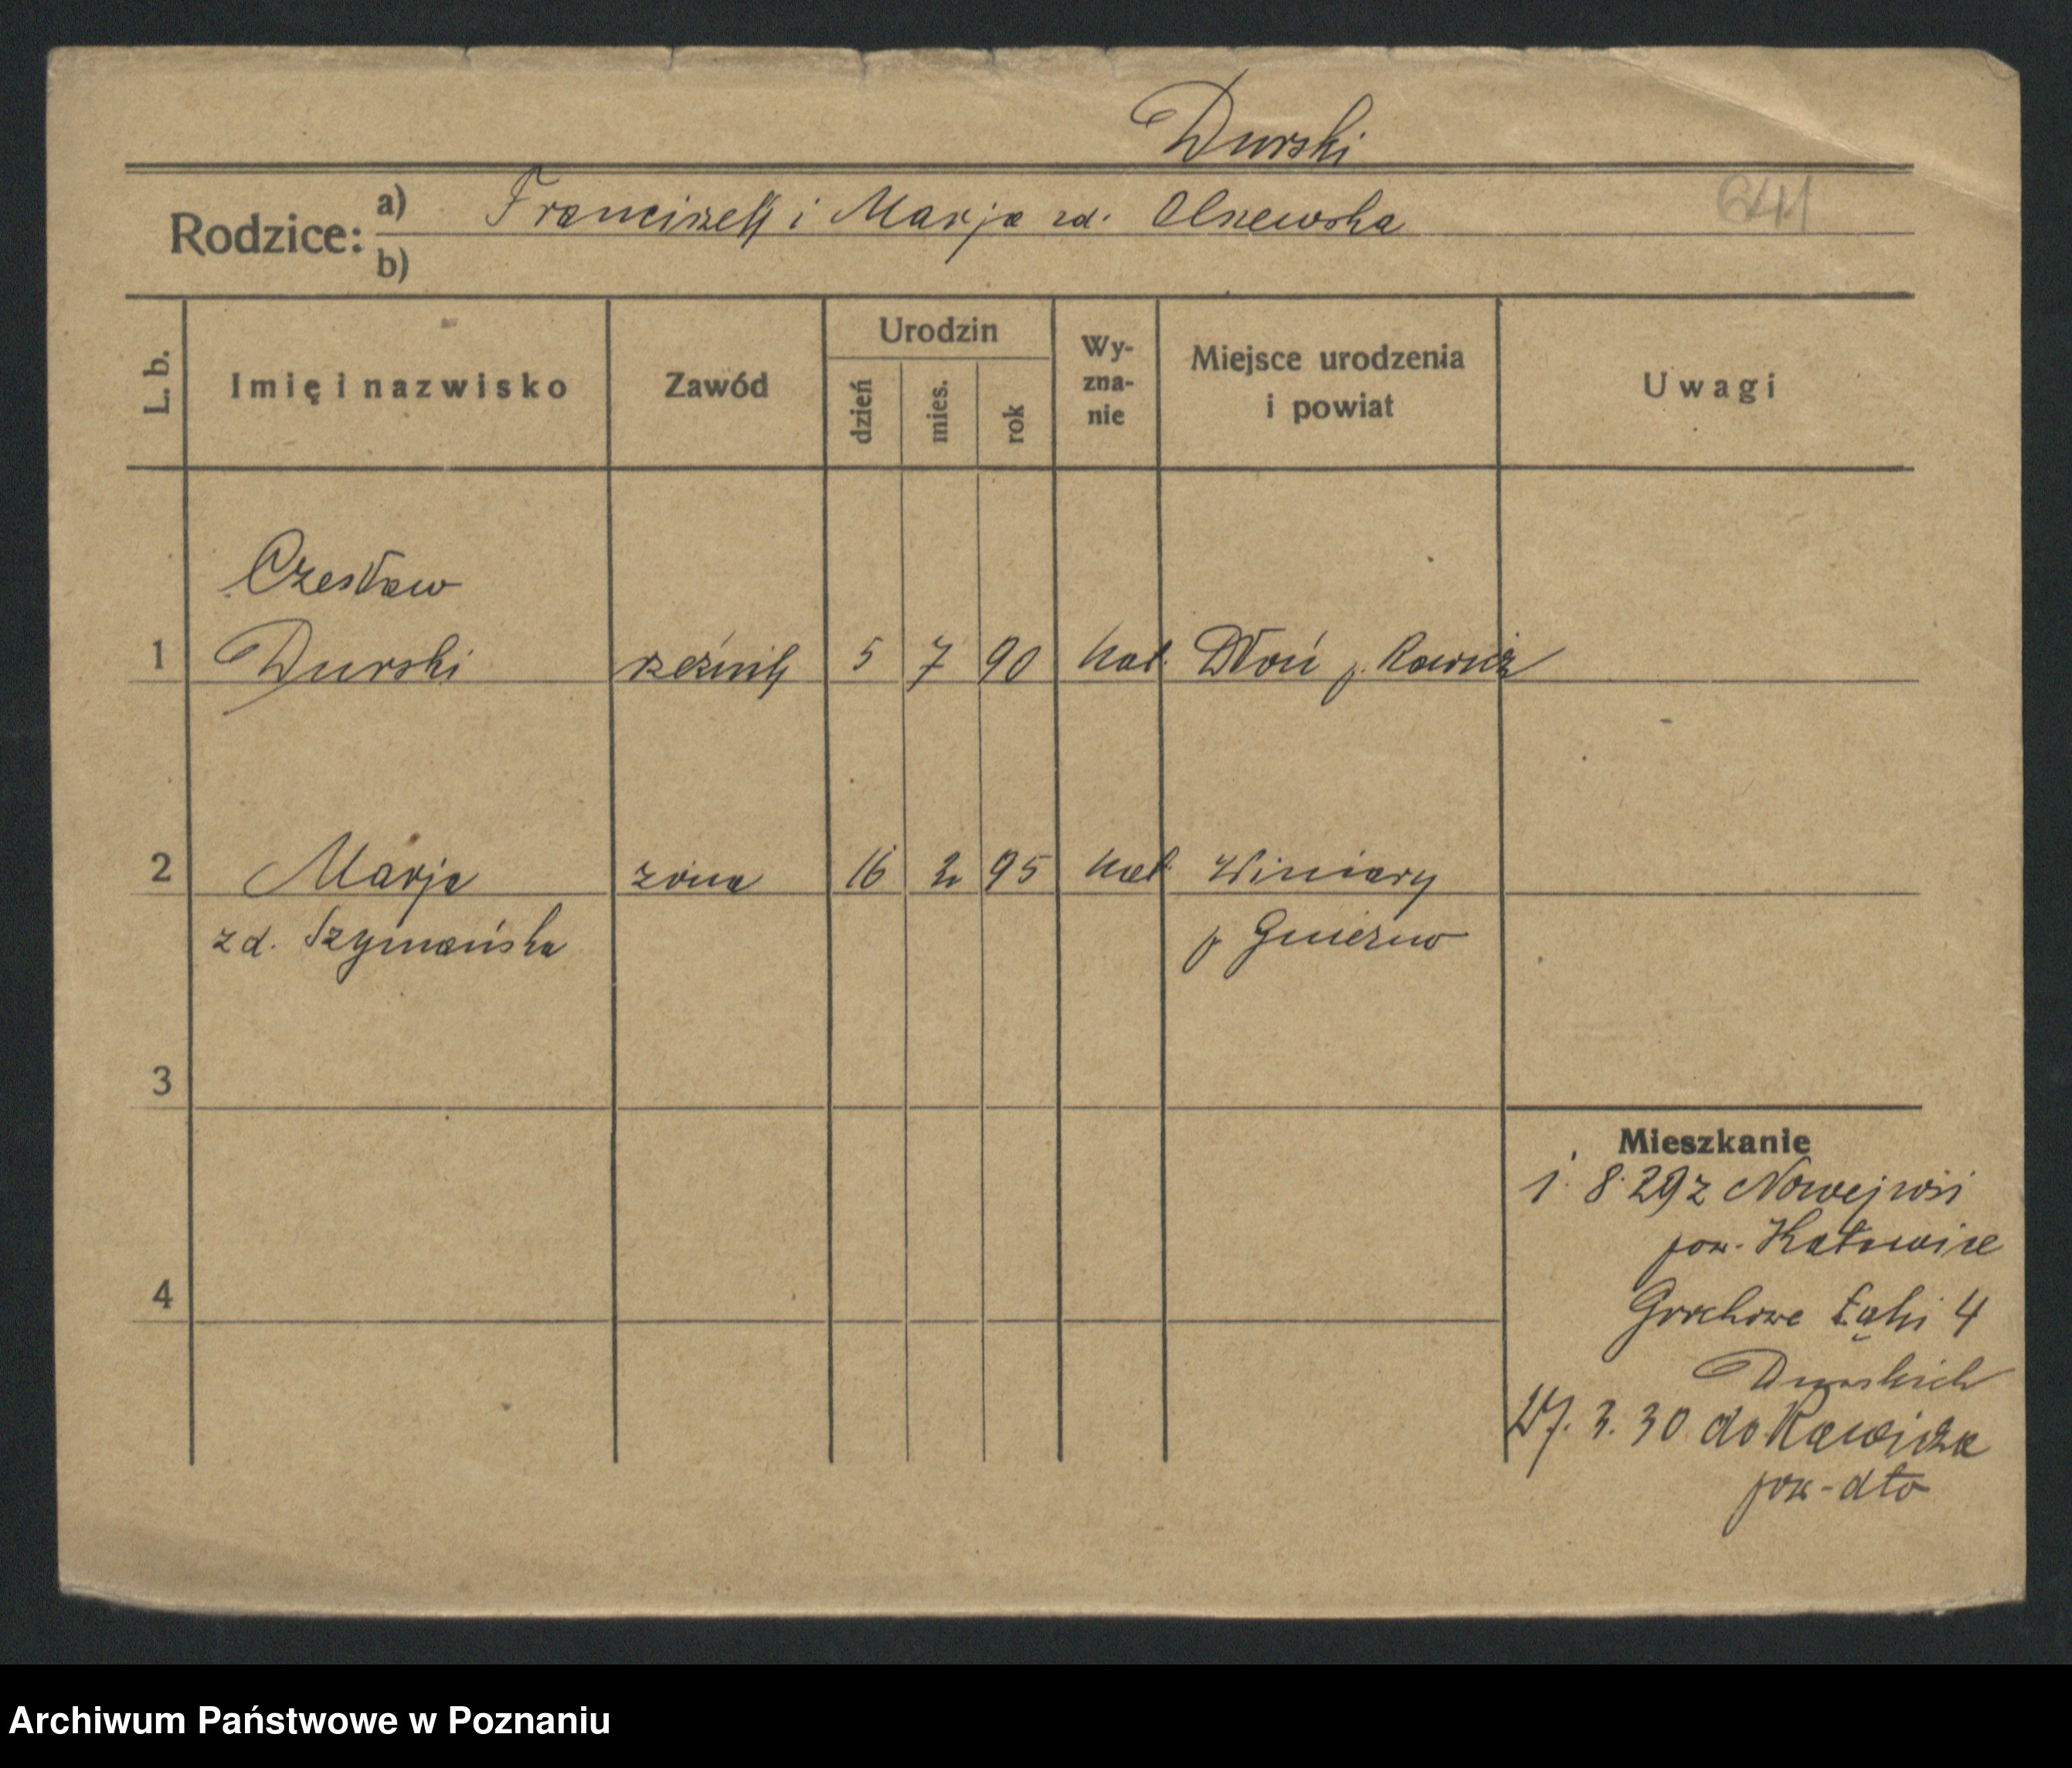 Durski
Rodzice: a) Franciszek i Marja zd. Olszewska
b)
L. b. Imię i nazwisko Zawód Urodzin dzień mies. rok Wyznanie Miejsce urodzenia i powiat Uwagi
Czesław
1 Durski rzeźnik 5 7 90 kat. Dłoń p. Rawicz
2 Marja żona 16 2 95 kat. Winiary
zd. Szymańska p Gniezno
3
Mieszkanie
1. 8. 29 z Nowejwsi
pow. Katowice
4
Grochowe Łąki 4
Durskich
27. 3. 30 do Rawicza
pow - dto
Archiwum Państwowe w Poznaniu